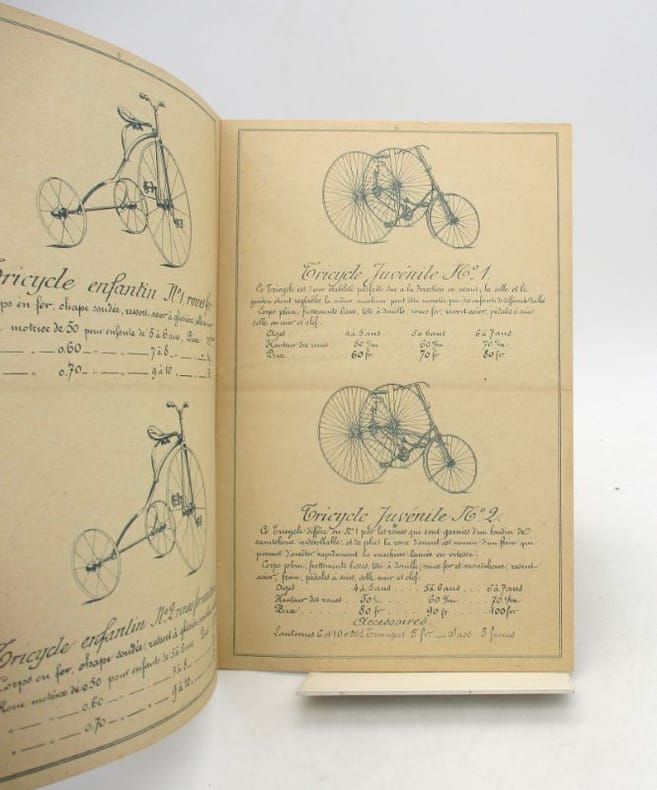 Tricycle enfantin Nº1, roues fer
corps en fer, chape soudée, ressort acier à glissière,
motrice de 50 pour enfants de 5 à 6 ans, Prix
0.60 7 à 8
0.70 9 à 10
Tricycle enfantin Nº2, roues fer
Corps en fer, chape soudée, ressort à glissière
Roue motrice de 0.50 pour enfants de 5 à 6 ans
0.60 7 à 8
0.70 9 à 10
Tricycle Juvénile Nº1.
Ce Tricycle est d'une stabilité parfaite due à la direction en avant; la selle et le
guidon étant réglables la même machine peut être montée par des enfants de
Corps plein, frottements lisses, tête à douille, roues fer, ressort acier, pédales à scies
selle en cuir et clef.
Ages . 4 à 5 ans 5 à 6 ans 6 à 7 ans
Hauteur des roues 50 c/m 60 c/m 70 c/m
Prix 60 fr. 70 fr 80 fr
Tricycle Juvénile Nº2.
Ce Tricycle diffère du Nº1 par les roues qui sont garnies d'un boudin de
caoutchouc indécollable; et de plus la roue d'avant est munie d'un frein qui
permet d'arrêter rapidement la machine lancée en vitesse.
Corps plein, frottements lisses, tête à douille, roues fer et caoutchouc, ressort
acier, frein, pédales à scies, selle cuir et clef.
Ages 4 à 5 ans 5 à 6 ans 6 à 7 ans
Hauteur des roues 50 c/m 60 c/m 70 c/m
Prix 80 fr 90 fr 100 fr
Accessoires.
Lanternes 6 et 10 et 20f. Trompes 5 fr. Sacs 3 francs